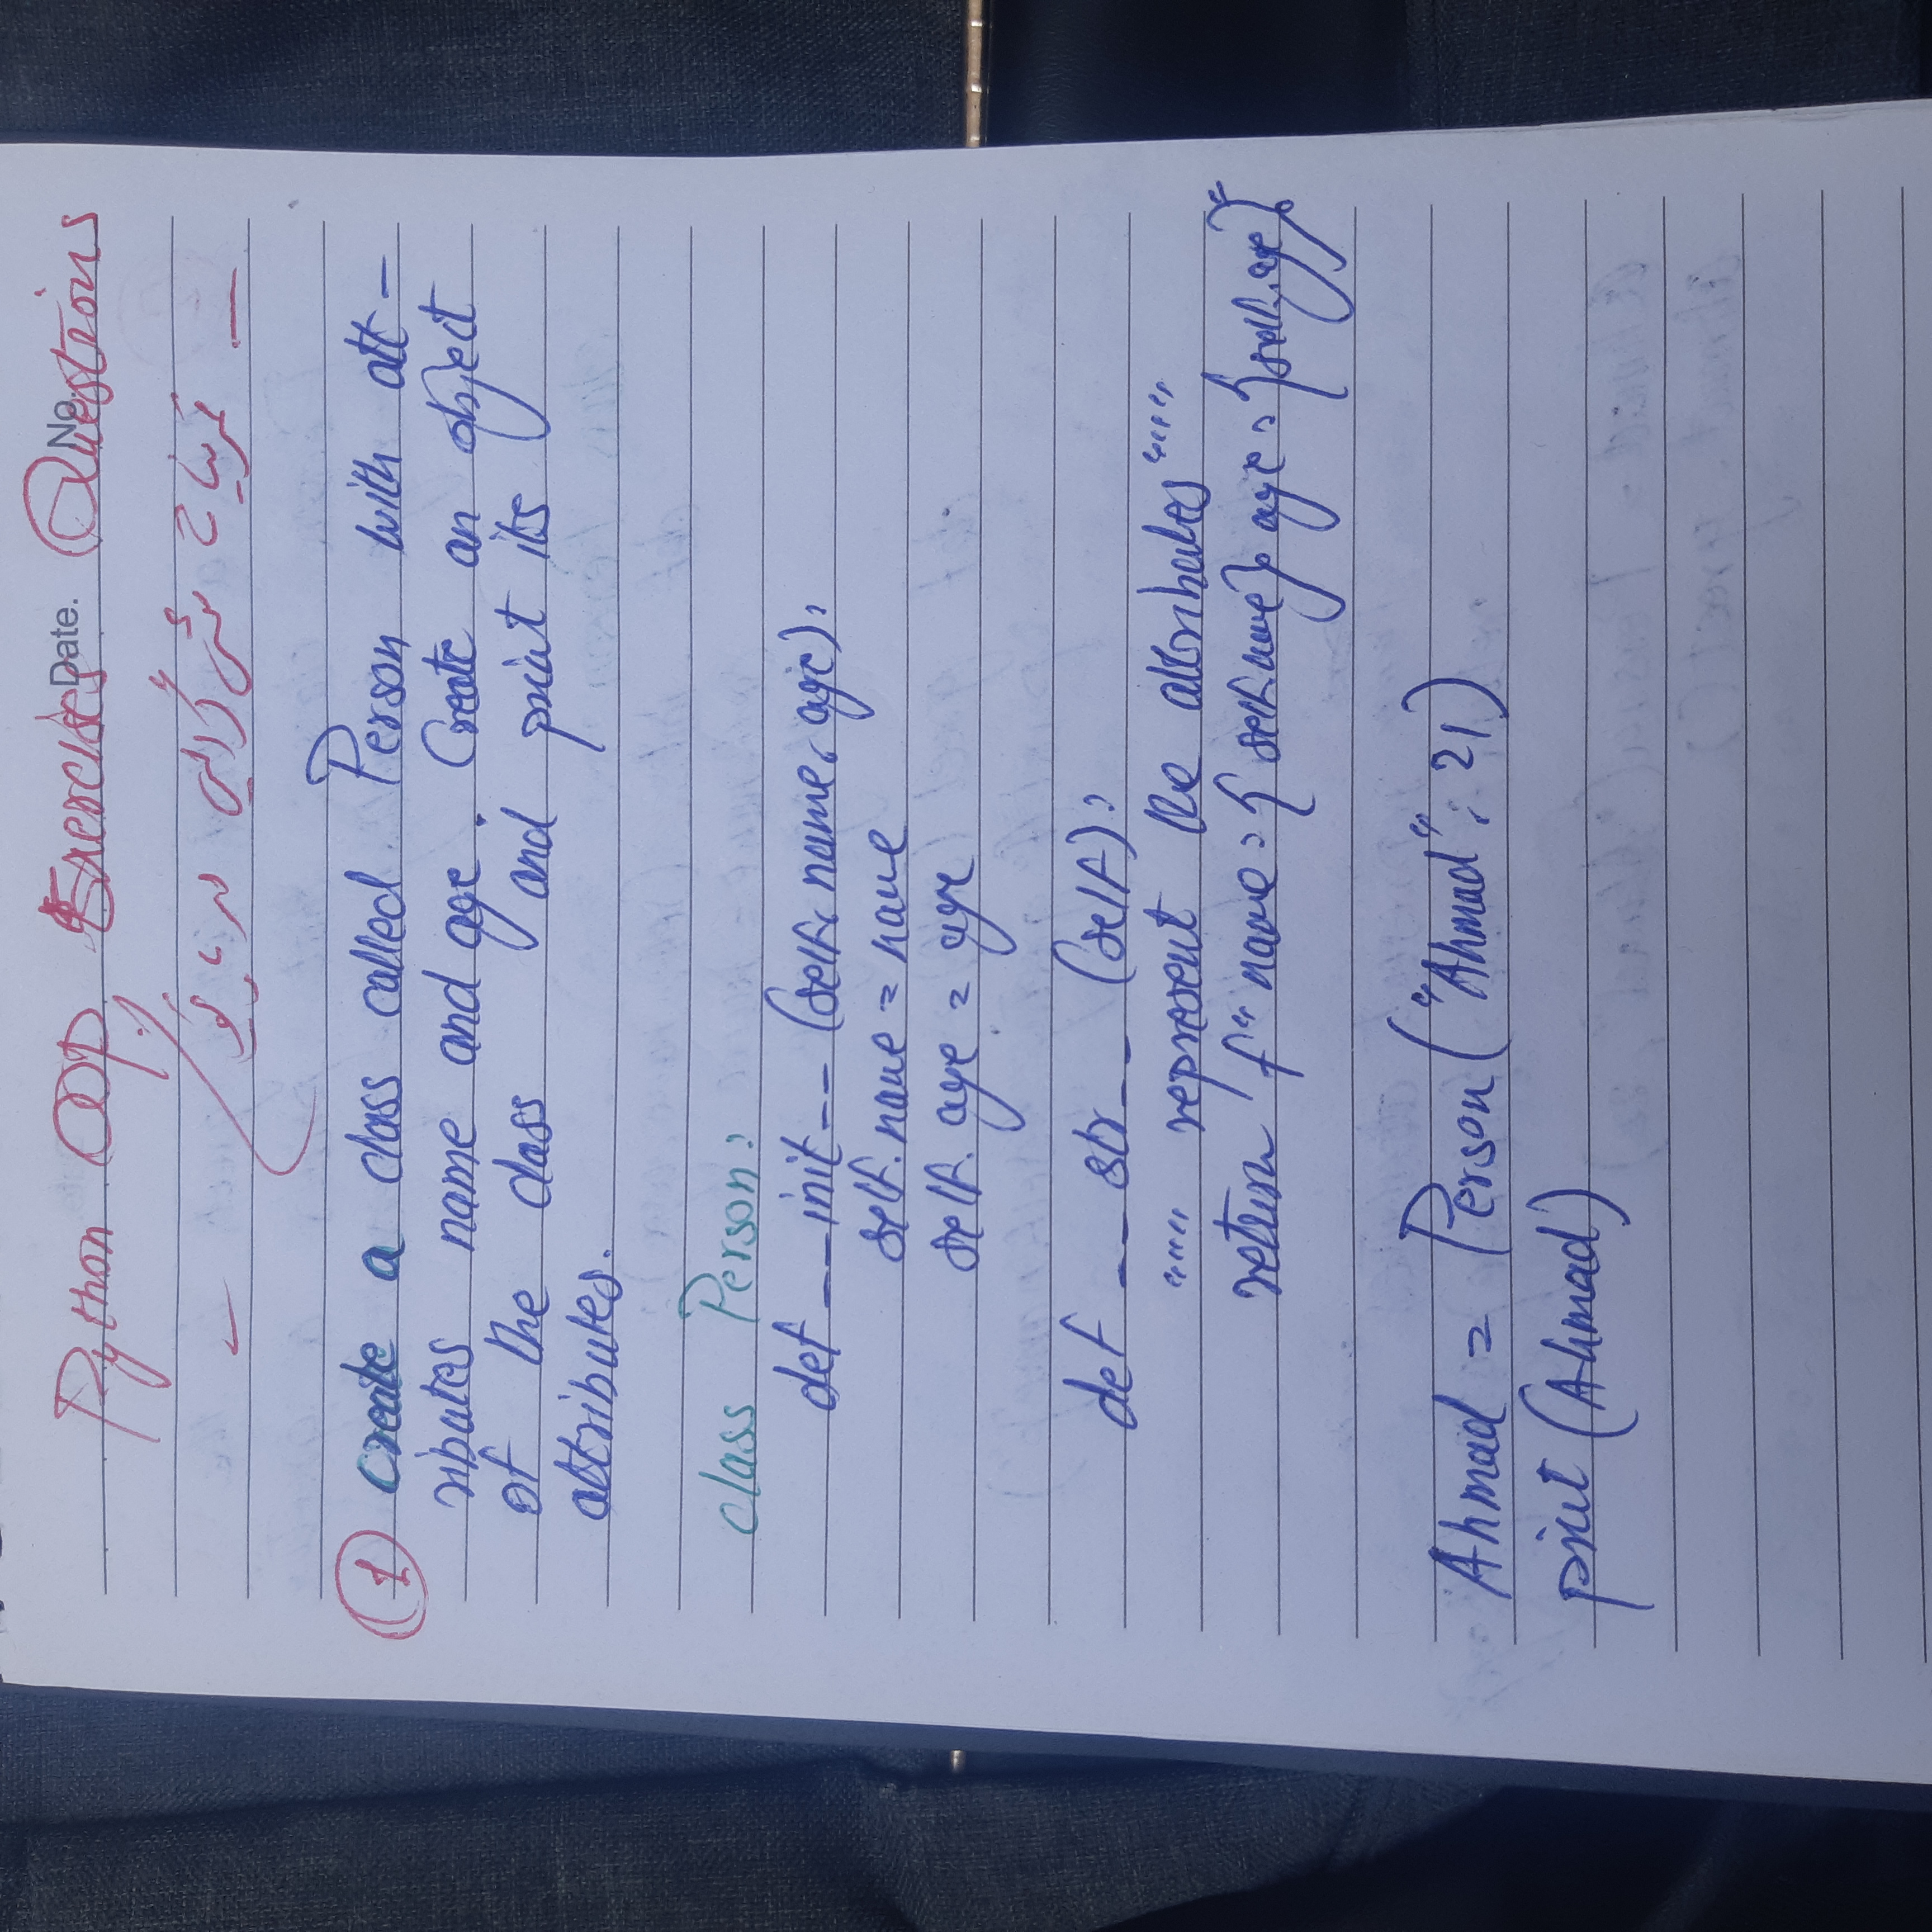 Date. No.
Python OOP, Exercises Questions
تمرینات شی گرایی در پایتون
1 Create a class called Person with att-
ributes name and age. Create an object
of the class and print its
attributes.
class Person:
def __init__ (self, name, age):
self.name = name
self.age = age
def __str__ (self):
""" represent the attributes """
return f" name: {self.name}, age: {self.age}"
Ahmad = Person("Ahmad", 21)
print (Ahmad)